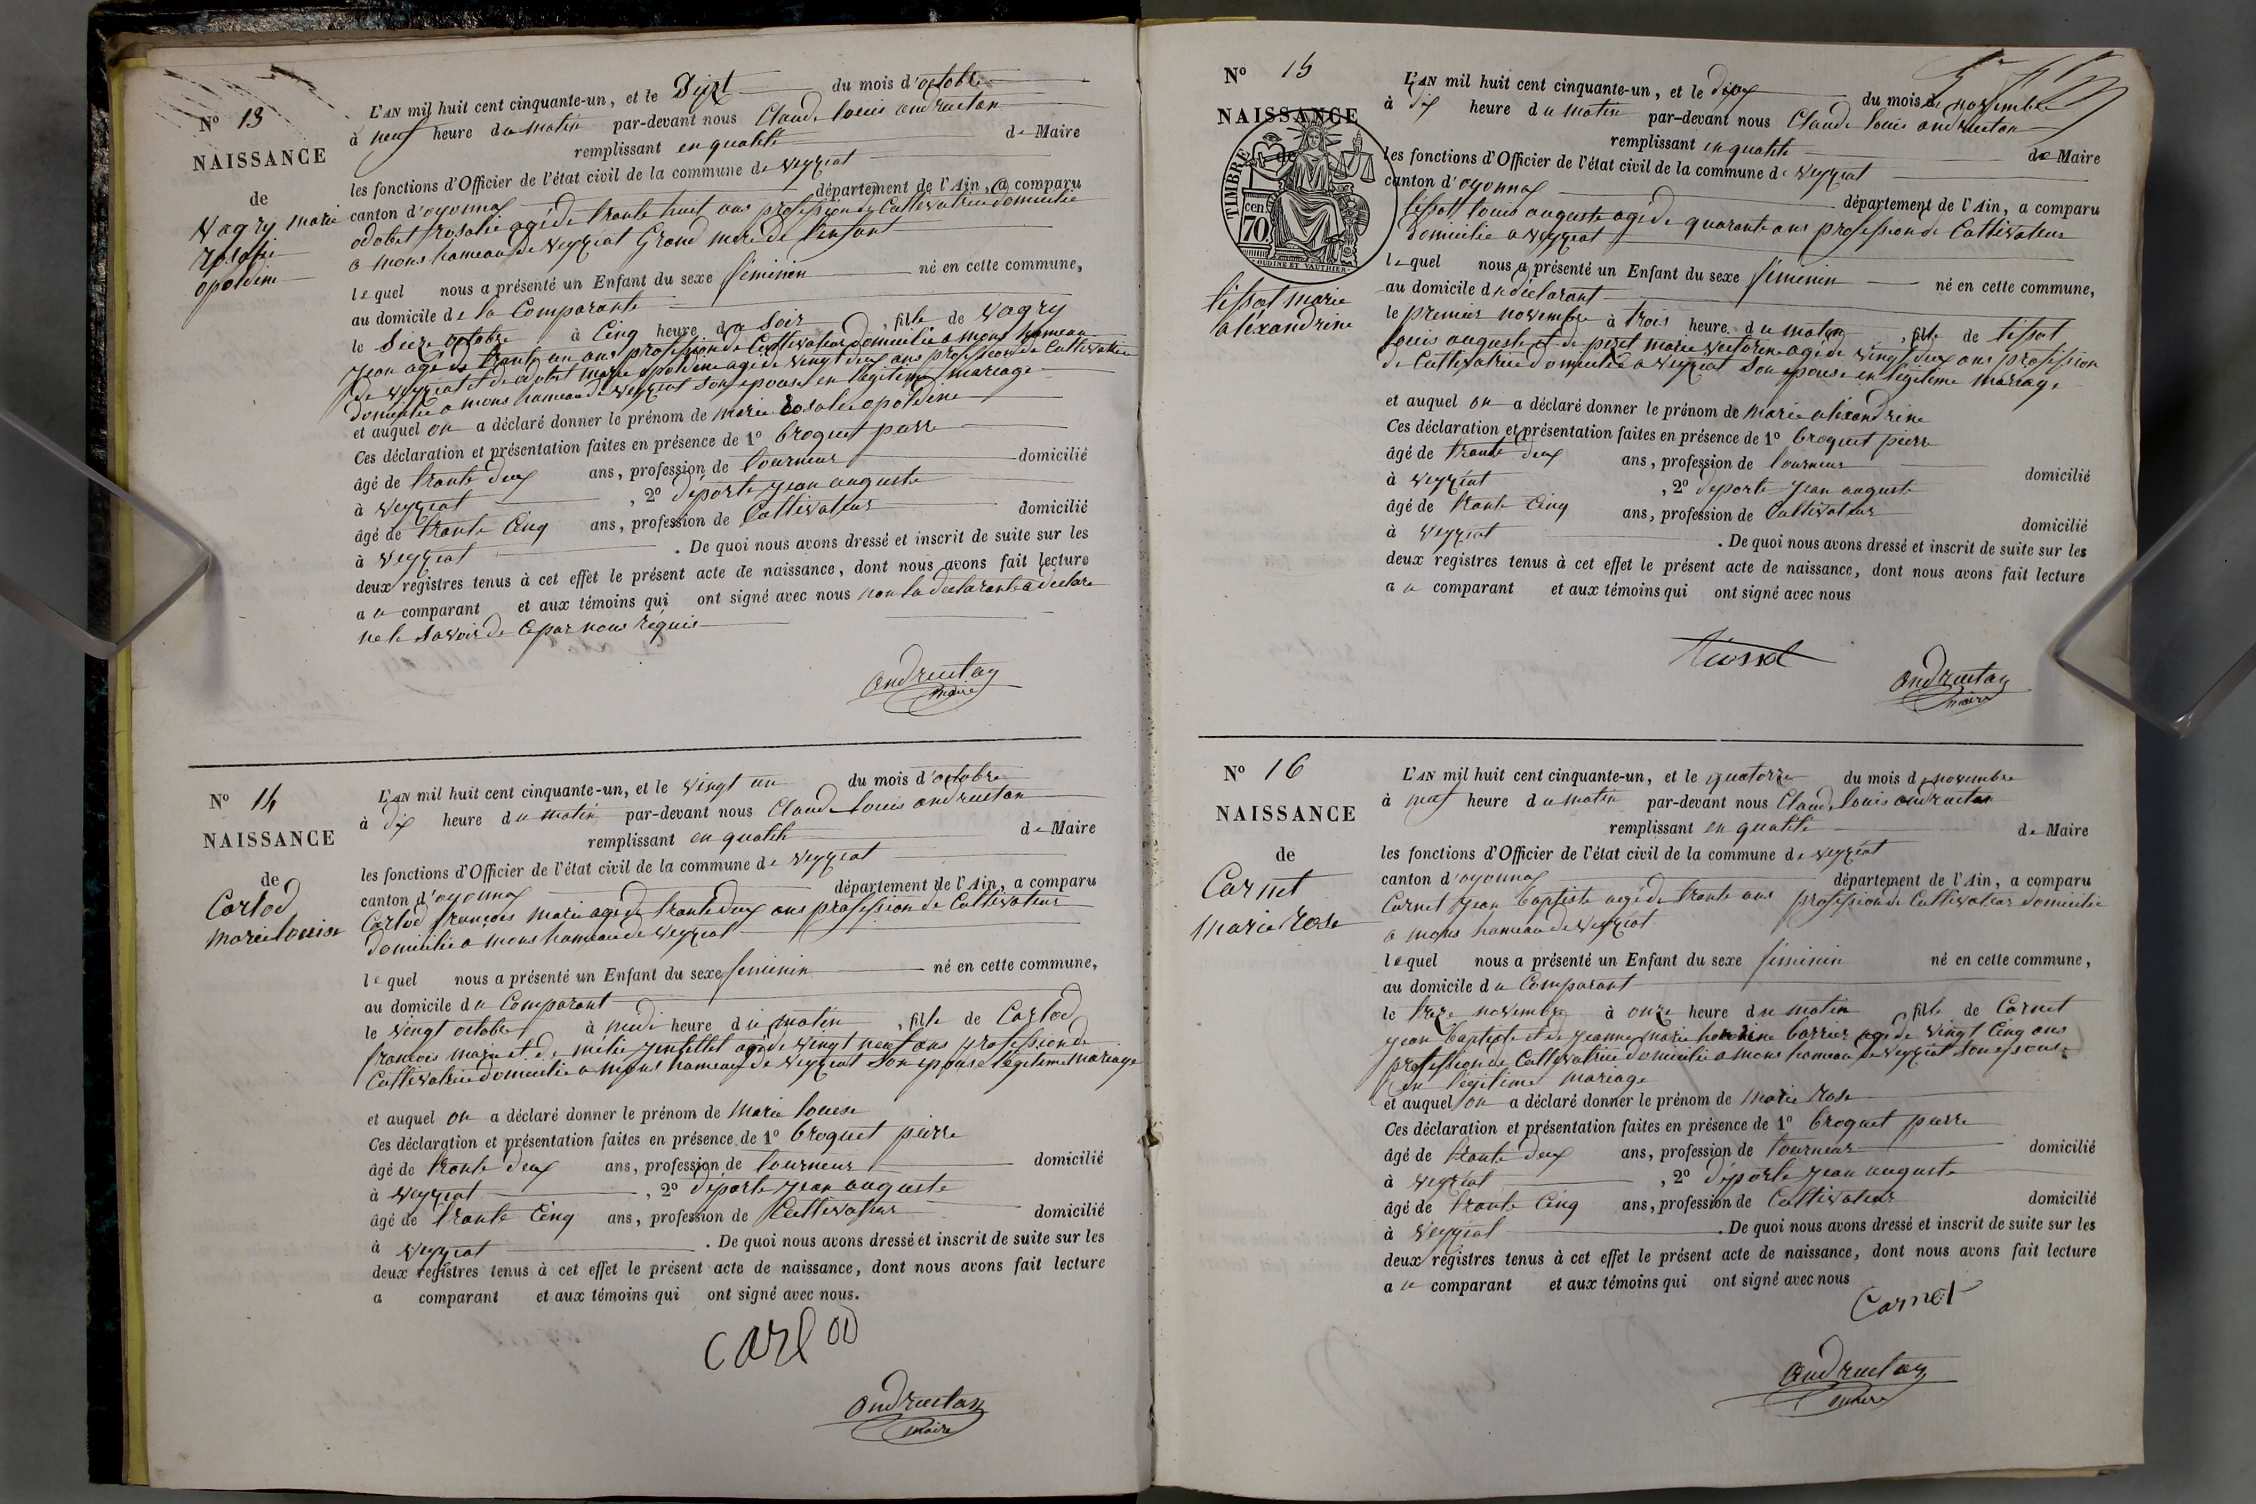 N° 13
NAISSANCE
de
Vagry marie
rosalie
opoldine
L'AN mil huit cent cinquante-un, et le Dixt du mois d'octobre
à neuf heure du matin par-devant nous Claude Louis andrustan
remplissant en qualité de Maire
les fonctions d'Officier de l'état civil de la commune de veyziat
canton d'oyonnax département de l'Ain, a comparu
odobet rosalie agé de trante huit ans profession de Cultivatrice domicilie
a mons hameau de veyziat Grand mere de l'enfant
lequel nous a présenté un Enfant du sexe féminin né en cette commune,
au domicile de la Comparante
le Seize octobre à Cinq heure du Soir, fille de Vagry
jean agé de trante un ans profession de Cultivateur domicilie a mons hameau
de veyziat et de odobet marie opoldine agé de vingt deux ans profession de Cultivatrice
domicilie a mons hameau de veyziat son epouse en légitime mariage
et auquel on a déclaré donner le prénom de marie rosalie opoldine
Ces déclaration et présentation faites en présence de 1° broquet pierre
âgé de trante deux ans, profession de tourneur domicilié
à veyziat, 2° déporte jean auguste
âgé de trante Cinq ans, profession de Cultivateur domicilié
à veyziat. De quoi nous avons dressé et inscrit de suite sur les
deux registres tenus à cet effet le présent acte de naissance, dont nous avons fait lecture
au comparant et aux témoins qui ont signé avec nous non la declarante a déclaré
ne le savoir de ce par nous réquis
andrustan
maire
N° 14
NAISSANCE
de
Carlod
marie louise
L'AN mil huit cent cinquante-un, et le vingt un du mois d'octobre
à dix heure du matin par-devant nous Claude Louis andrustan
remplissant en qualité de Maire
les fonctions d'Officier de l'état civil de la commune de veyziat
canton d'oyonnax département de l'Ain, a comparu
Carlod françois marie agé de trante deux ans profession de Cultivateur
domicilie a mons hameau de veyziat
lequel nous a présenté un Enfant du sexe féminin né en cette commune,
au domicile du Comparant
le vingt octobre à midi heure du matin, fille de Carlod
francois marie et de agé de vingt neuf ans profession de
Cultivatrice domicilie a mons hameau de veyziat son epouse légitime mariage
et auquel on a déclaré donner le prénom de marie louise
Ces déclaration et présentation faites en présence de 1° broquet pierre
âgé de trante deux ans, profession de tourneur domicilié
à veyziat, 2° déporte jean auguste
âgé de trante Cinq ans, profession de Cultivateur domicilié
à veyziat. De quoi nous avons dressé et inscrit de suite sur les
deux registres tenus à cet effet le présent acte de naissance, dont nous avons fait lecture
a comparant et aux témoins qui ont signé avec nous.
carlod
andrustan
maire
N° 15
NAISSANCE
de
TIMBRE
cen.
70.
OUDINE ET VAUTHIER
tissot marie
aléxandrine
L'AN mil huit cent cinquante-un, et le deux du mois de novembre
à dix heure du matin par-devant nous Claude Louis andrustan
remplissant en qualité de Maire
les fonctions d'Officier de l'état civil de la commune de veyziat
canton d'oyonnax département de l'Ain, a comparu
tissot louis auguste agé de quarante ans profession de Cultivateur
domicilie a veyziat
lequel nous a présenté un Enfant du sexe féminin né en cette commune,
au domicile du déclarant
le premier novembre à trois heure du matin, fille de tissot
louis auguste et de marie victorine agé de vingt deux ans profession
de Cultivatrice domicilié a veyziat son epouse en légitime mariage
et auquel on a déclaré donner le prénom de marie aléxandrine
Ces déclaration et présentation faites en présence de 1° broquet pierre
âgé de trante deux ans, profession de tourneur domicilié
à veyziat, 2° déporte jean auguste
âgé de trante Cinq ans, profession de Cultivateur domicilié
à veyziat. De quoi nous avons dressé et inscrit de suite sur les
deux registres tenus à cet effet le présent acte de naissance, dont nous avons fait lecture
au comparant et aux témoins qui ont signé avec nous
andrustan
maire
N° 16
NAISSANCE
de
Carnet
marie Rose
L'AN mil huit cent cinquante-un, et le quatorze du mois de novembre
à neuf heure du matin par-devant nous Claude Louis andrustan
remplissant en qualité de Maire
les fonctions d'Officier de l'état civil de la commune de veyziat
canton d'oyonnax département de l'Ain, a comparu
Carnet jean baptiste agé de trante ans profession de Cultivateur domicilie
a mons hameau de veyziat
lequel nous a présenté un Enfant du sexe féminin né en cette commune,
au domicile du Comparant
le treze novembre à onze heure du matin, fille de Carnet
jean baptiste et de jeanne marie barrier agé de vingt Cinq ans
profession de Cultivatrice domicilie a mons hameau de veyziat son epouse
en légitime mariage
et auquel on a déclaré donner le prénom de marie rose
Ces déclaration et présentation faites en présence de 1° broquet pierre
âgé de trante deux ans, profession de tourneur domicilié
à veyziat, 2° déporte jean auguste
âgé de trante Cinq ans, profession de Cultivateur domicilié
à veyziat. De quoi nous avons dressé et inscrit de suite sur les
deux registres tenus à cet effet le présent acte de naissance, dont nous avons fait lecture
au comparant et aux témoins qui ont signé avec nous
Carnet
andrustan
maire